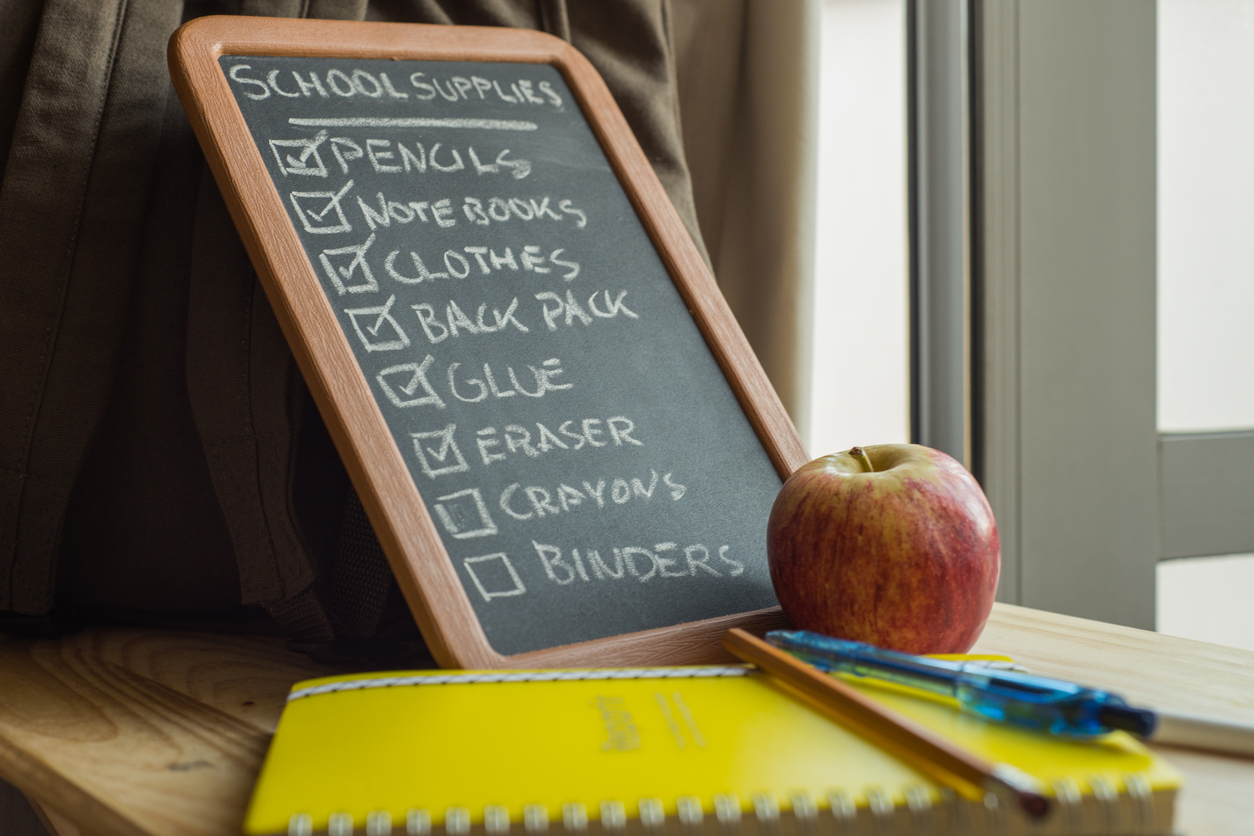 SCHOOL SUPPLIES
PENCILS
NOTEBOOKS
CLOTHES
BACK PACK
GLUE
ERASER
CRAYONS
BINDERS